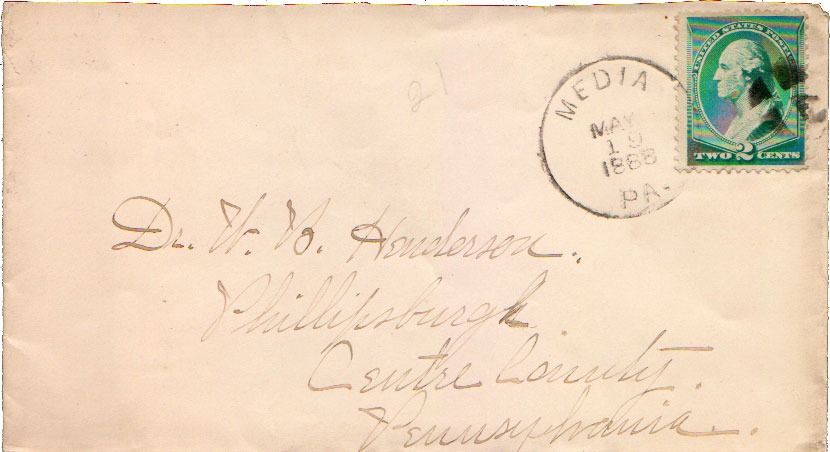 21
UNITED STATES POSTAGE
MEDIA
MAY
19
1888
PA.
TWO 2 CENTS
Dr. W. B. Henderson.
Phillipsburgh
Centre County.
Pennsylvania.